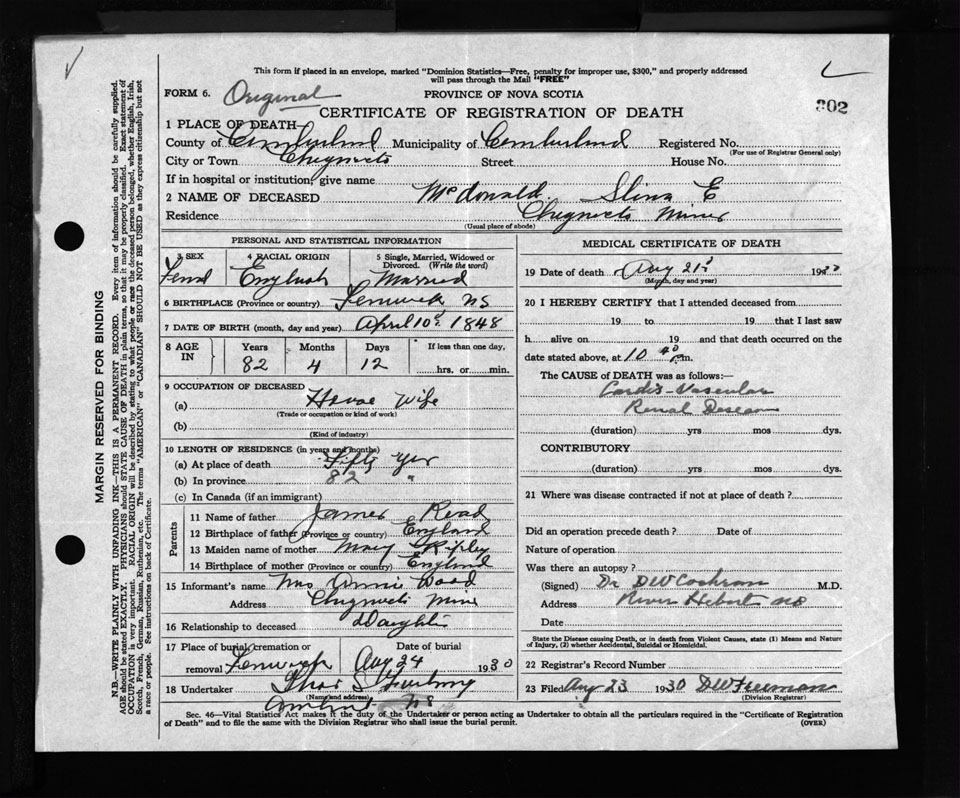 This form if placed in an envelope, marked "Dominion Statistics—Free, penalty for improper use, $300," and properly addressed
will pass through the Mail "FREE"
FORM 6. Original PROVINCE OF NOVA SCOTIA
CERTIFICATE OF REGISTRATION OF DEATH 302
1 PLACE OF DEATH
County of Cumberland Municipality of Cumberland Registered No.
(For use of Registrar General only)
City or Town Chignecto Street House No.
If in hospital or institution, give name
2 NAME OF DECEASED McDonald E
Residence Chignecto Mines
(Usual place of abode)
MARGIN RESERVED FOR BINDING
N.B.—WRITE PLAINLY WITH UNFADING INK—THIS IS A PERMANENT RECORD. Every item of information should be carefully supplied.
AGE should be stated EXACTLY. PHYSICIANS should STATE CAUSE OF DEATH in plain terms, so that it may be properly classified. Exact statement of
OCCUPATION is very important. RACIAL ORIGIN will be described by stating to what people or race the deceased person belonged, whether English, Irish,
Scotch, French, German, Russian, Ruthenian, etc. The terms "AMERICAN" or "CANADIAN" SHOULD NOT BE USED as they express citizenship but not
a race or people. See instructions on back of Certificate.
PERSONAL AND STATISTICAL INFORMATION
3 SEX 4 RACIAL ORIGIN 5 Single, Married, Widowed or
Divorced. (Write the word)
English Married
6 BIRTHPLACE (Province or country) Fenwick NS
7 DATE OF BIRTH (month, day and year) April 10 1848
8 AGE IN Years Months Days If less than one day,
82 4 12 hrs. or min.
9 OCCUPATION OF DECEASED
(a) House Wife
(Trade or occupation or kind of work)
(b)
(Kind of industry)
10 LENGTH OF RESIDENCE (in years and months)
(a) At place of death Fifty Yrs
(b) In province 82 "
(c) In Canada (if an immigrant)
Parents
11 Name of father James Read
12 Birthplace of father (Province or country) England
13 Maiden name of mother Mary Ripley
14 Birthplace of mother (Province or country) England
15 Informant's name Mrs Annie Wood
Address Chignecto Mine
16 Relationship to deceased Daughter
17 Place of burial, cremation or Date of burial
removal Fenwick Aug 24 1930
18 Undertaker
(Name and address)
Amherst NS
MEDICAL CERTIFICATE OF DEATH
19 Date of death Aug 21 1930
(Month, day and year)
20 I HEREBY CERTIFY that I attended deceased from
19 to 19 that I last saw
h alive on 19 and that death occurred on the
date stated above, at 10 40 p.m.
The CAUSE OF DEATH was as follows:
Cardio-Vascular
Renal Disease
(duration) yrs mos dys.
CONTRIBUTORY
(duration) yrs mos dys.
21 Where was disease contracted if not at place of death?
Did an operation precede death? Date of
Nature of operation
Was there an autopsy?
(Signed) Dr DW Cochran M.D.
Address River Hebert NS
Date
State the Disease causing Death, or in death from Violent Causes, state (1) Means and Nature
of Injury, (2) whether Accidental, Suicidal or Homicidal.
22 Registrar's Record Number
23 Filed Aug 23 1930 DW Freeman
(Division Registrar)
Sec. 46—Vital Statistics Act makes it the duty of the Undertaker or person acting as Undertaker to obtain all the particulars required in the "Certificate of Registration
of Death" and to file the same with the Division Registrar who shall issue the burial permit. (OVER)